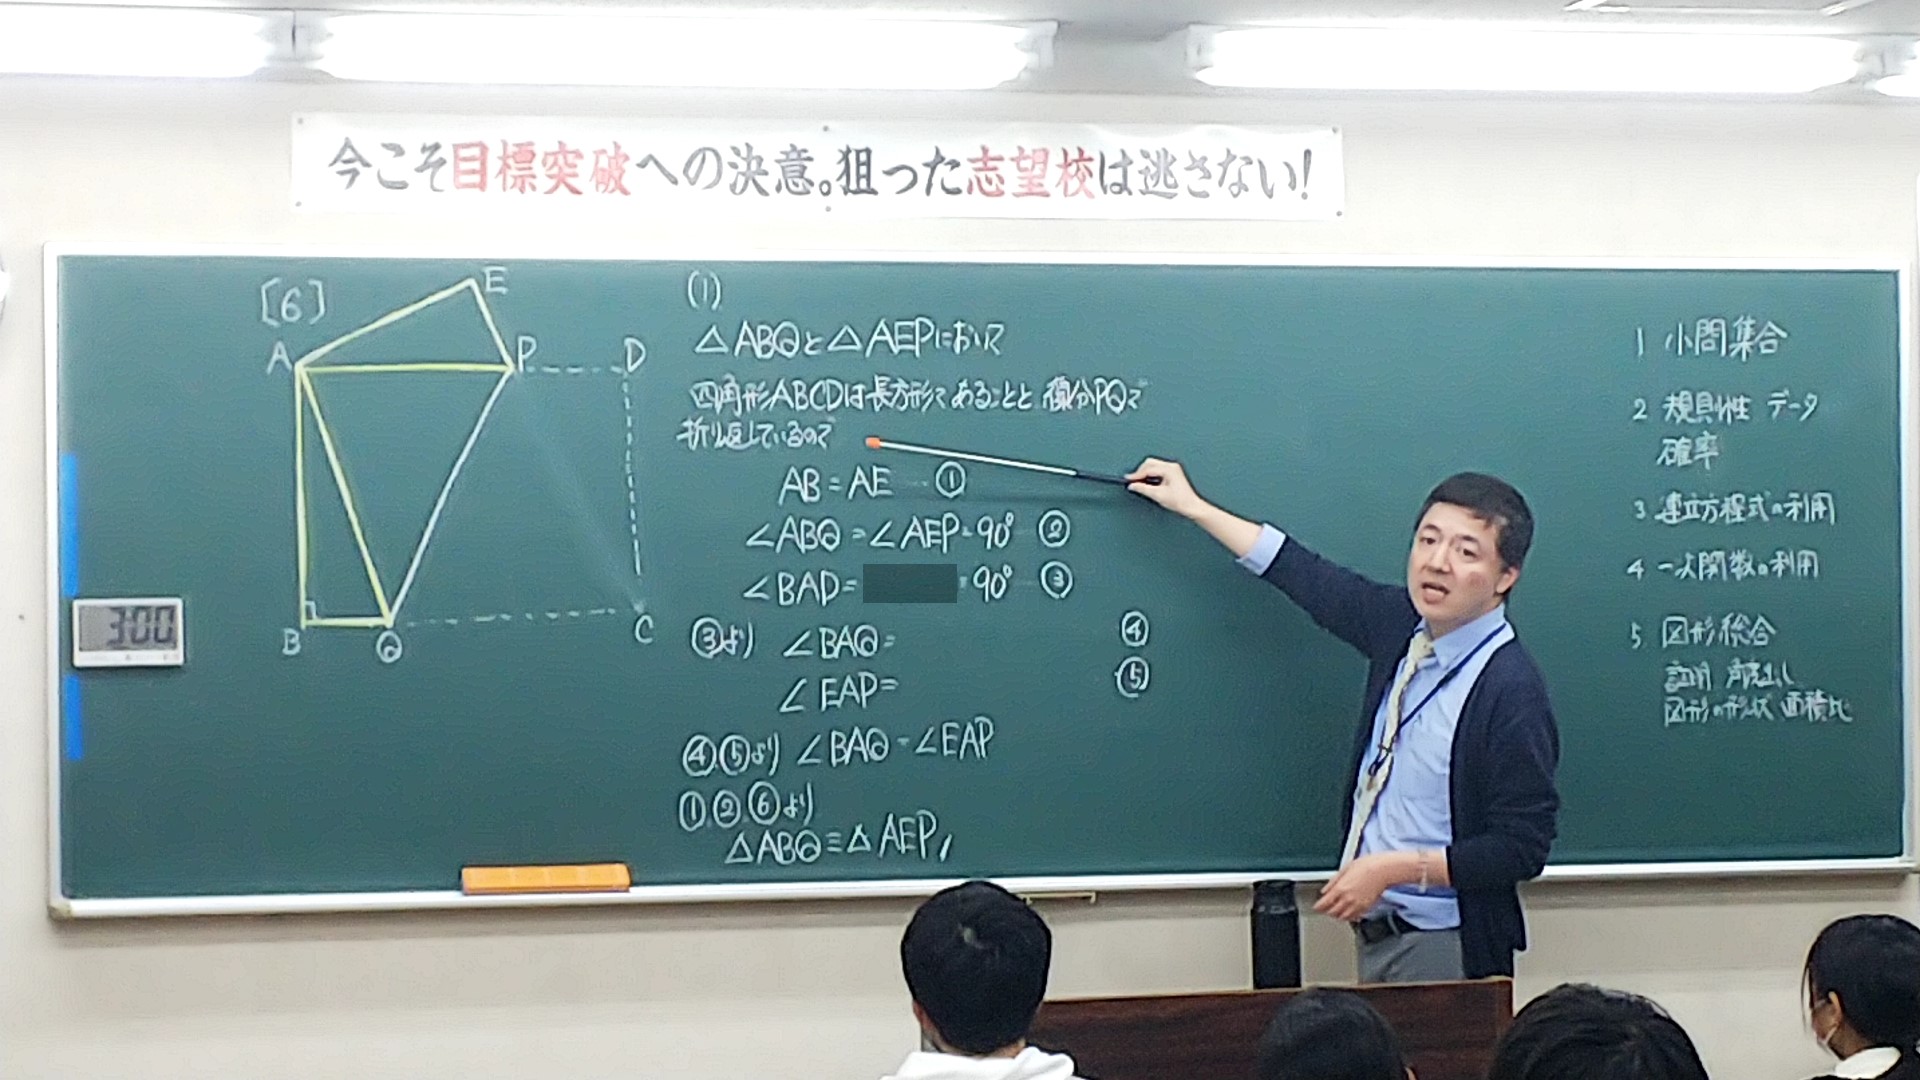 今こそ目標突破への決意。狙った志望校は逃さない!
[6]
E
A
P
D
B
Q
C
300
(1)
△ABQと△AEPにおいて
四角形ABCDは長方形であることと 線分PQで
折り返しているので
AB=AE ①
∠ABQ=∠AEP=90° ②
∠BAD= =90° ③
③より ∠BAQ= ④
∠EAP= ⑤
④,⑤より ∠BAQ=∠EAP
①②⑥より
△ABQ≡△AEP
1 小問集合
2 規則性 データ
確率
3 連立方程式の利用
4 一次関数の利用
5 図形総合
証明 角度出し
図形の形状 面積比